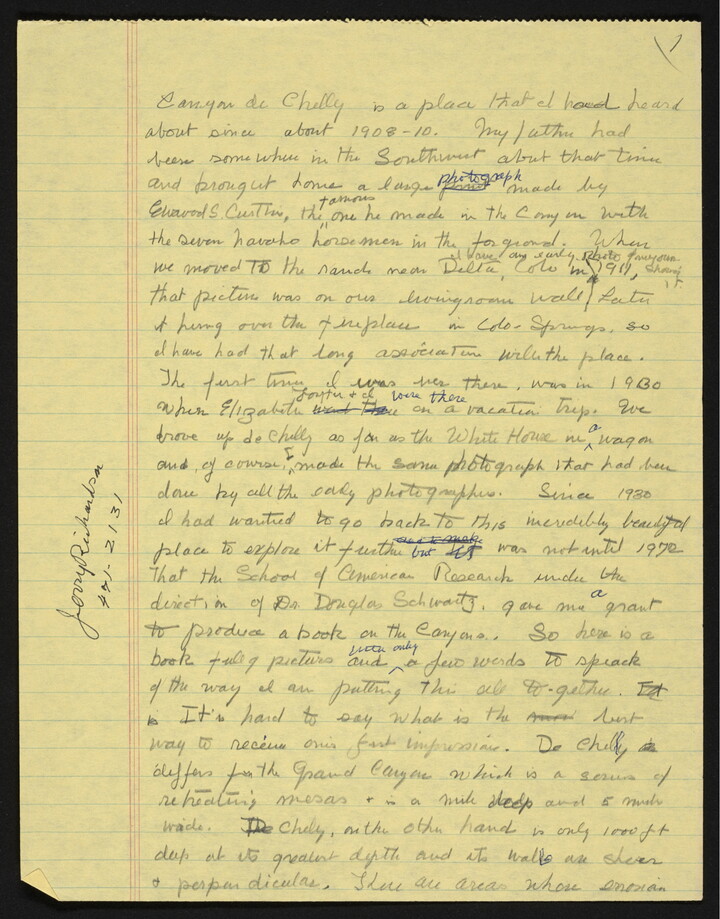 1
Canyon de Chelly is a place that I had heard
about since about 1908-10. My father had
been somewhere in the Southwest about that time
and brought home a large photograph made by
Edward S. Curtis, the famous one he made in the Canyon with
the seven navaho horsemen in the forground. When
we moved to the sands near Delta, Colo in 1911,
that picture was on our livingroom wall Later
it hung over the fireplace in Colo-Springs, so
I have had that long association with the place.
The first time I was ever there, was in 1930
when Elizabeth Forster & I were there on a vacation trip. We
drove up de Chelly as far as the White House in a wagon
and, of course, I made the same photograph that had been
done by all the early photographers. Since 1930
I had wanted to go back to this incredibly beautiful
place to explore it further but it was not until 1972
that the School of American Research under the
direction of Dr. Douglas Schwartz, gave me a grant
to produce a book on the Canyons. So here is a
book full of pictures and with only a few words to speack
of the way I am putting this all to-gether.
It is hard to say what is the best
way to receive ones first impression. De Chelly
differs from the Grand Canyon which is a series of
retreating mesas + is a mile deep and 5 miles
wide. De Chelly, on the other hand is only 1000 ft
deep at its greatest depth and its walls are sheer
+ perpendicular. There are areas whose erosion
Jerry Richardson
471-2131